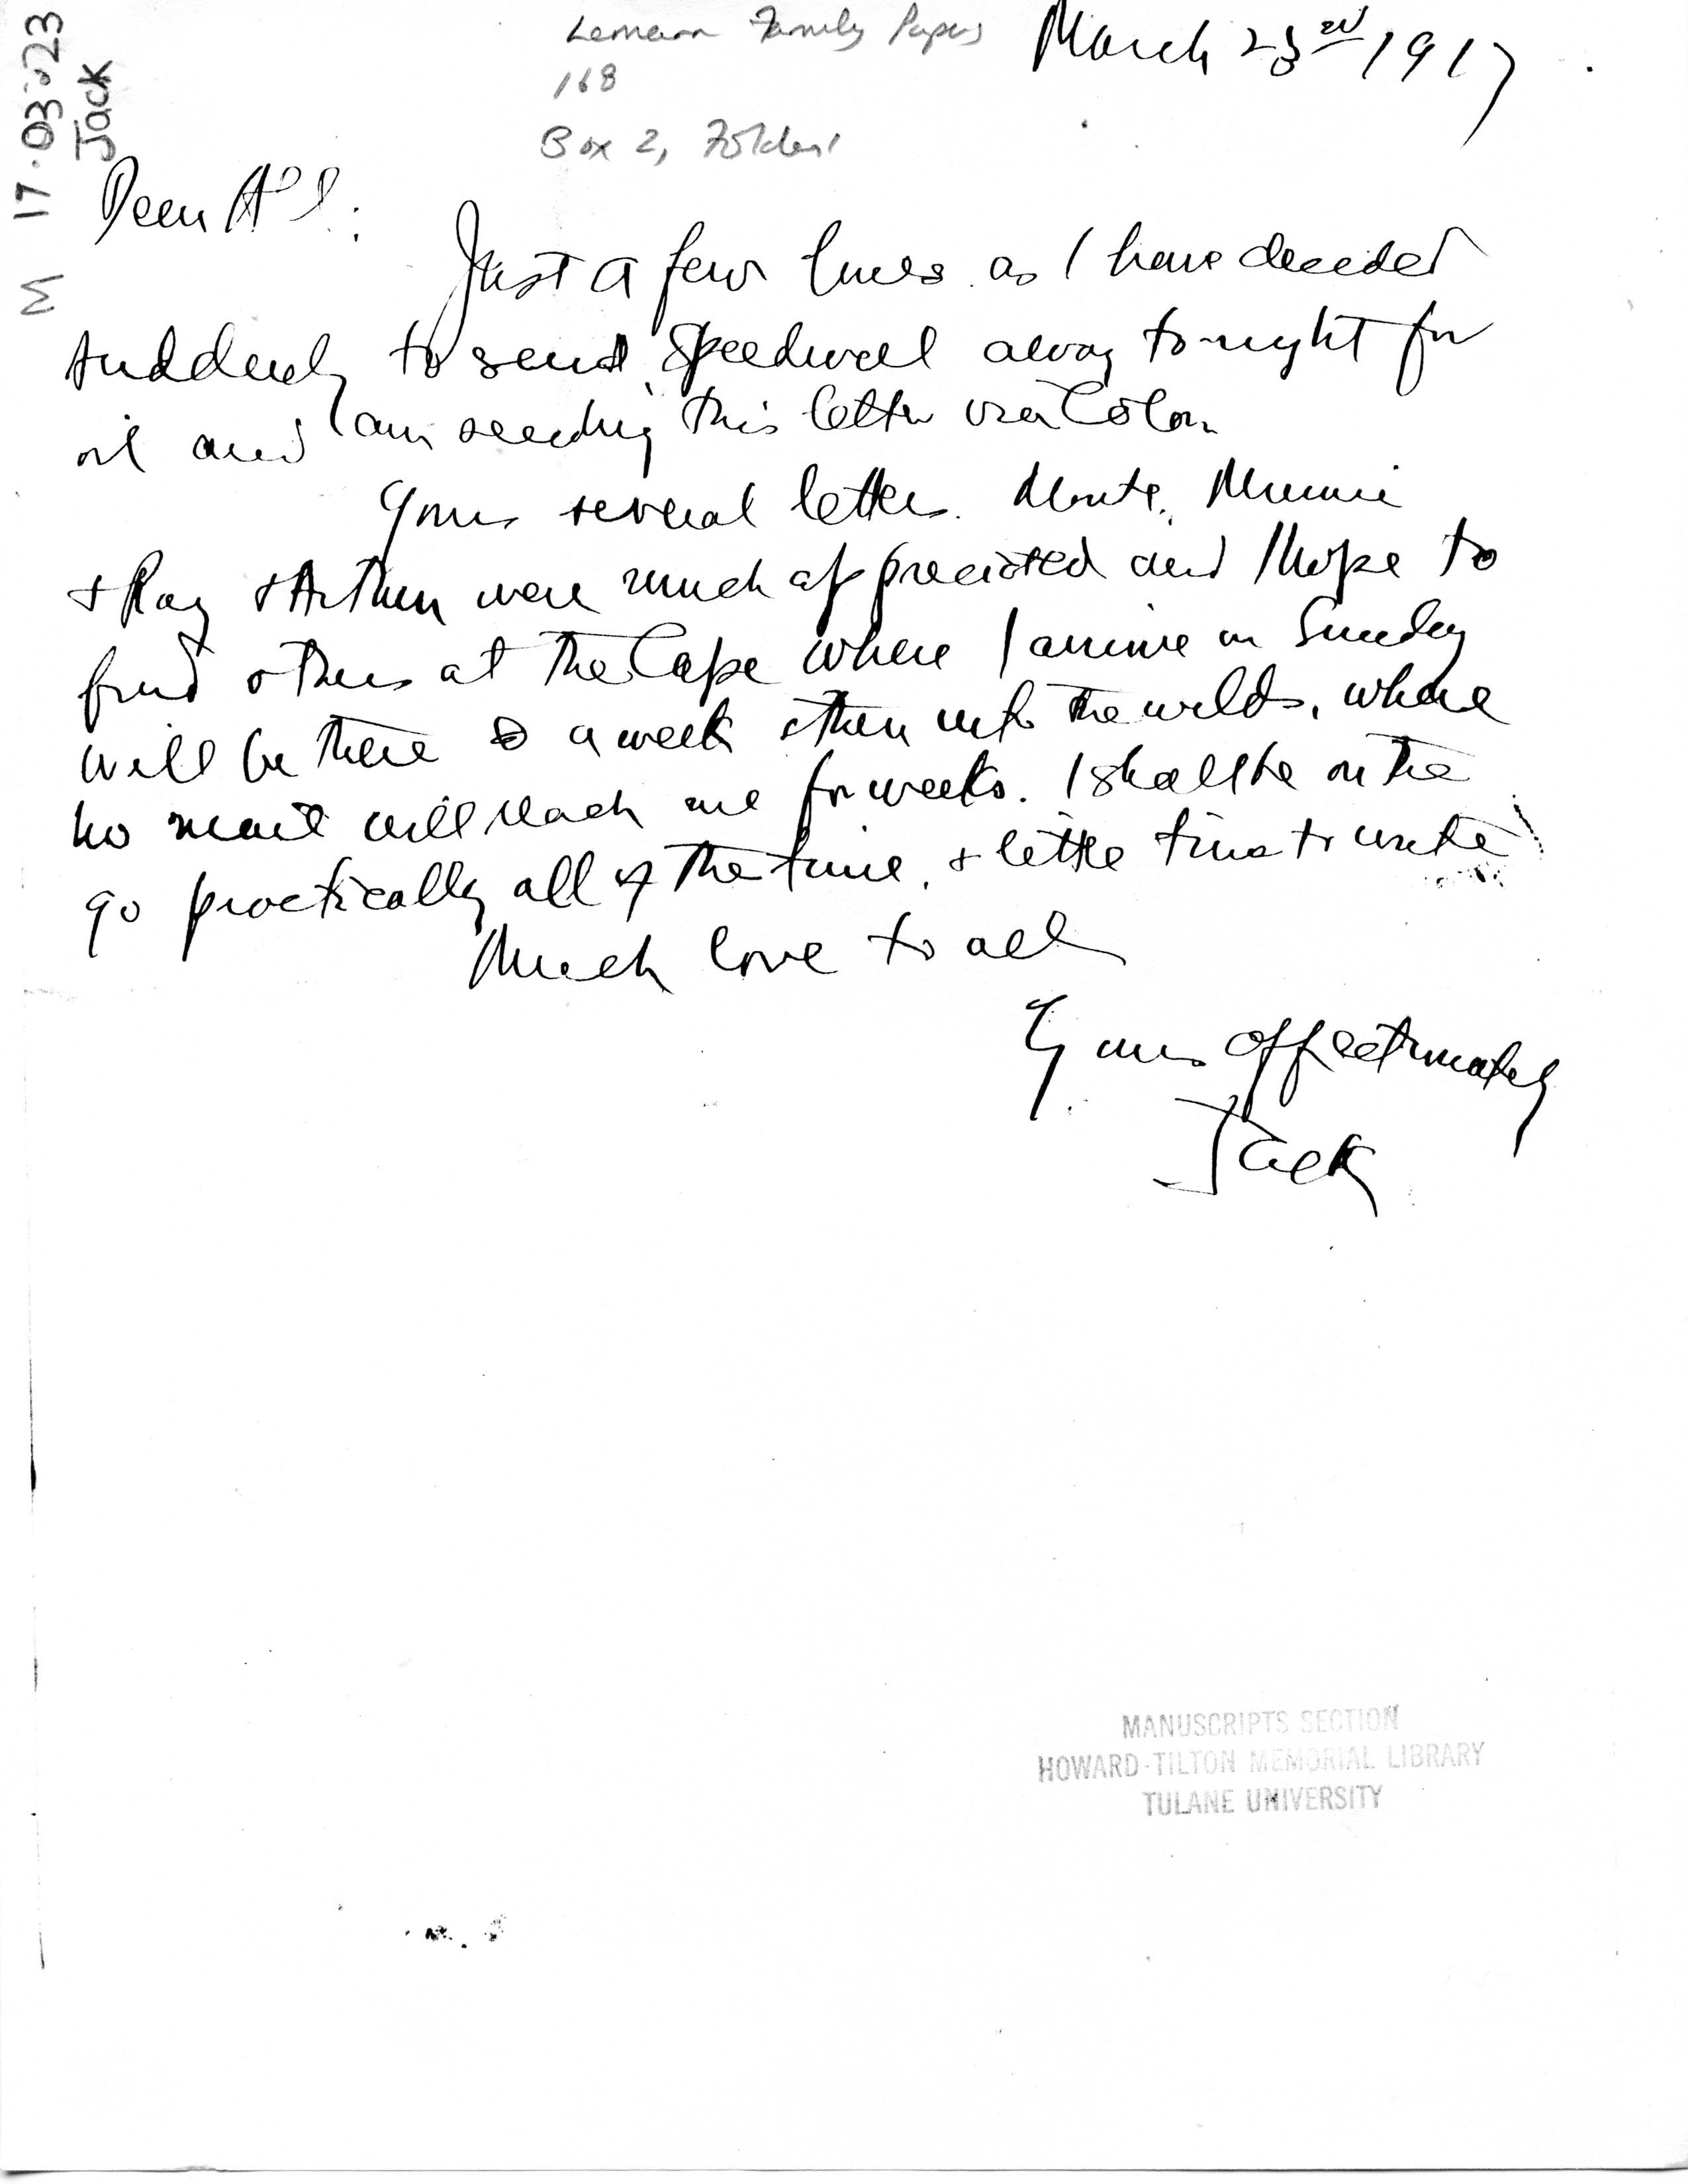 Lemann Family Papers
168
Box 2, Folder 1
17.03.23
Jack
M
March 23rd 1917
Dear All:
Just a few lines as I have decided
suddenly to send Speedwell away tonight for
oil and I am sending this letter via Colon
Yours several letters. Monte, Minnie
+ Ray + Arthur were much appreciated and I hope to
find others at the Cape where I arrive on Sunday
will be there a week & then into the wilds, where
no mail will reach me for weeks. I shall be on the
go practically all of the time, + little time to write
Much love to all
Yours affectionately
Jack
MANUSCRIPTS SECTION
HOWARD-TILTON MEMORIAL LIBRARY
TULANE UNIVERSITY